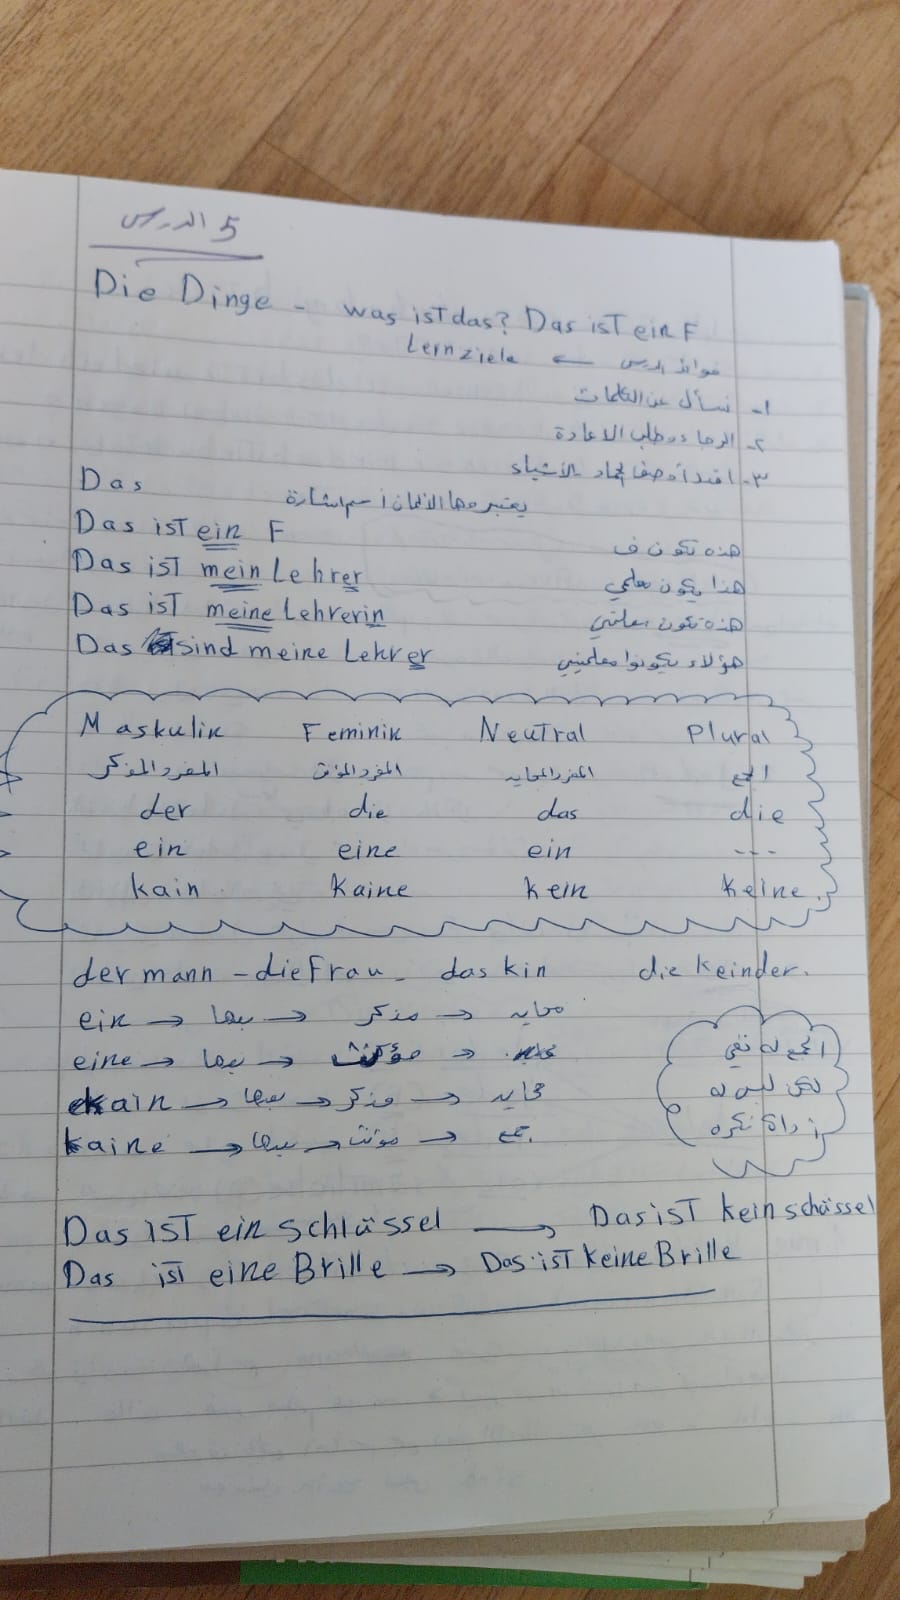 الدرس 5
Die Dinge - was ist das? Das ist ein F
Lernziele ← فوائد الدرس
١- نسأل عن الكلمات
٢- الرجاء وطلب الاعادة
٣- اقدر أوصف الجماد الأشياء
Das
يعتبروها الألمان أسم اشارة
Das ist ein F هذه تكون ف
Das ist mein Lehrer هذا يكون معلمي
Das ist meine Lehrerin هذه تكون معلمتي
Das sind meine Lehrer هؤلاء يكونوا معلميني
Maskulin Feminin Neutral Plural
المفرد المذكر المفرد المؤنث المفرد المحايد الجمع
der die das die
ein eine ein ---
kain kaine kein keine
der mann - die Frau - das kin die keinder.
ein → بعدها → مذكر → محايد
eine → بعدها → مؤنث →
kain → بعدها → مذكر → محايد
kaine → بعدها → مؤنث → جمع
الجمع له نفي
لكن ليس له
أداة نكره
Das ist ein schlässel → Das ist kein schässel
Das ist eine Brille → Das ist keine Brille